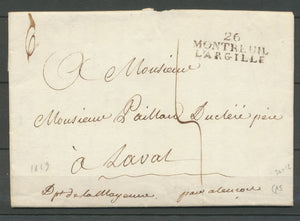 26
MONTREUIL
L'ARGILLÉ
A Monsieur
Monsieur Paillard Ducléré père
à Laval
Dpt de la Mayenne par alençon
1819